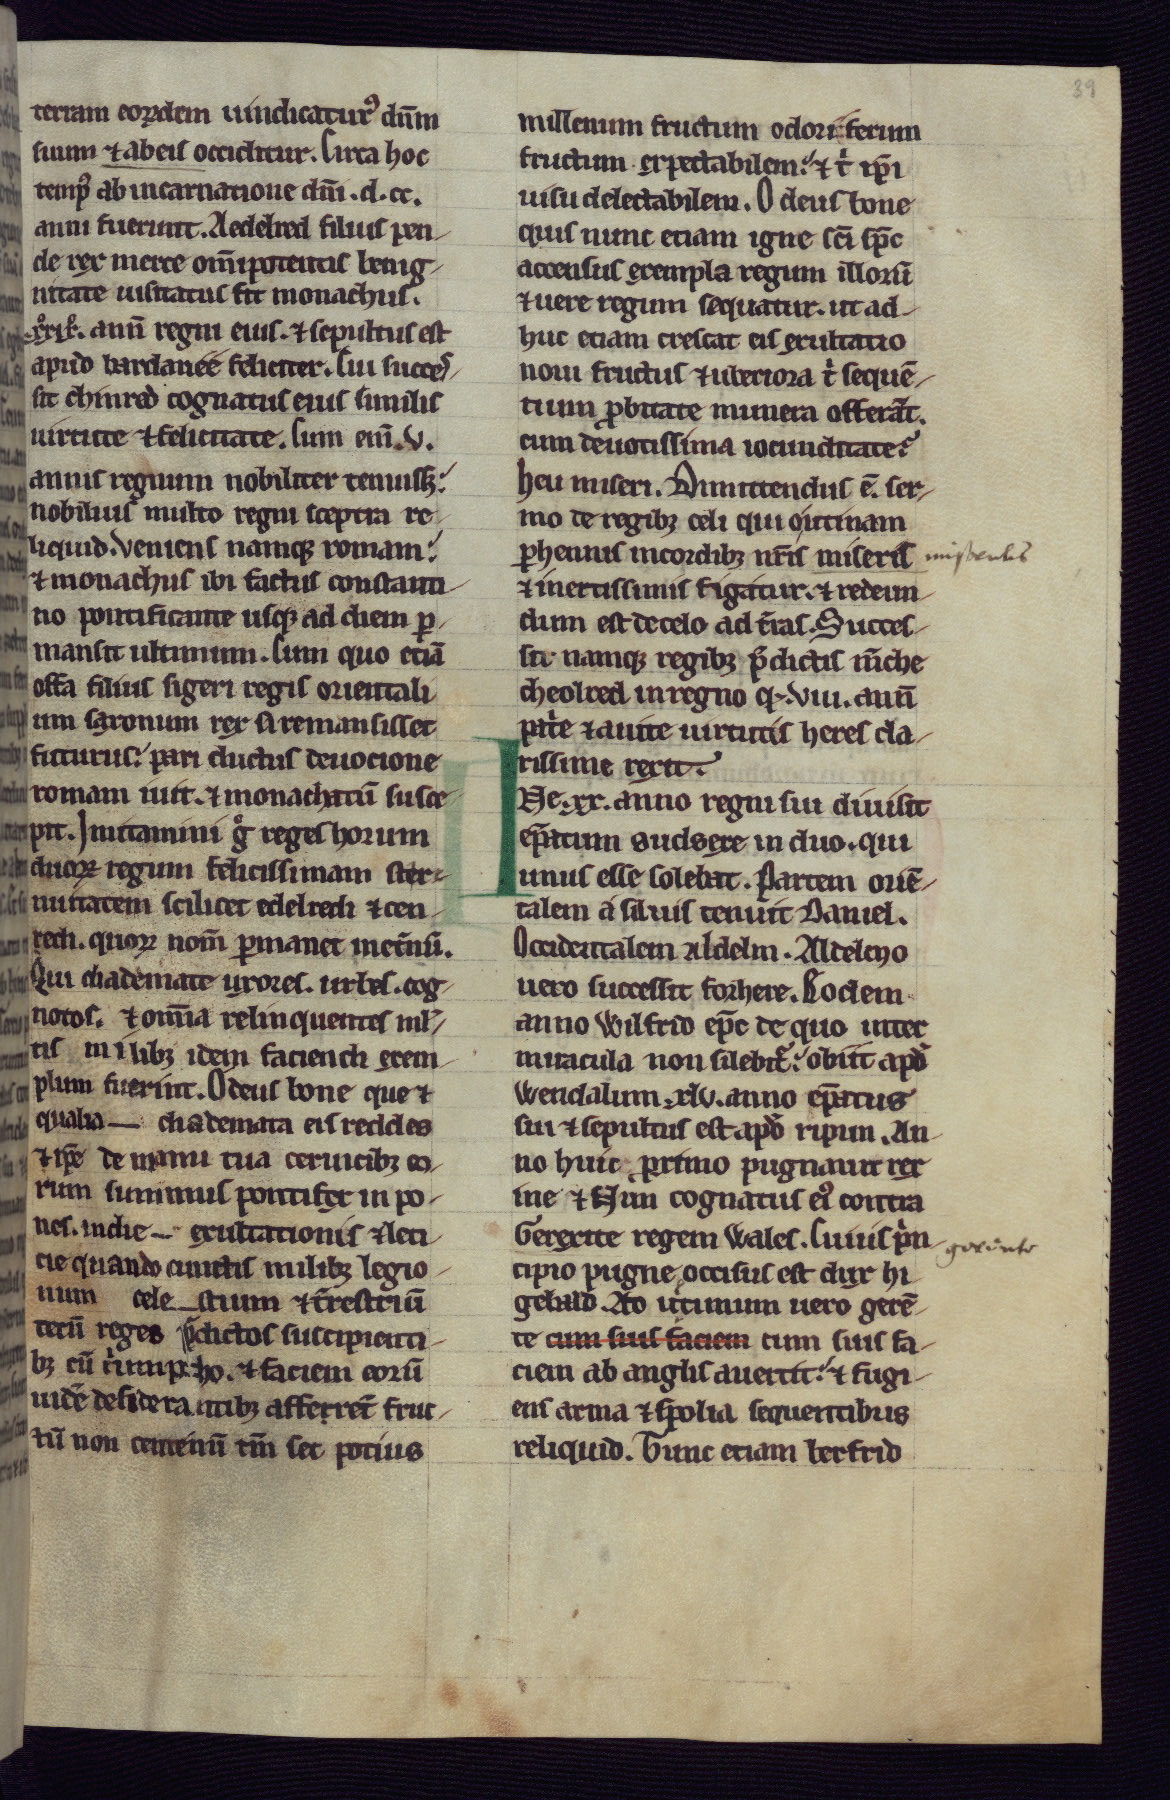 39
terram eorꝝdem uindicaturꝰ dn̄m
suum ⁊ abeis occiditur. Circa hoc
tempꝰ ab incarnatione dn̄i .d.cc.
anni fuerunt. Aedelred filius pen-
de rex merce om̄ipotentis benig-
nitate uisitatus fit monachus.
anñ regni eius. ⁊ sepultus est
apud bardaneẽ feliciter. Cui succeſ-
sit chinred cognatus eius similis
uirtute ⁊ felicitate. Cum eni̅ .v.
annis regnum nobiliter tenuiss;
nobilius multo regni sceptra re-
liquid. Veniens namqꝫ romam:
⁊ monachus ibi factus constanti-
no pontificante usqꝫ ad diem ꝑ-
mansit ultimum. Cum quo etiā
offa filius sigeri regis orientali
um saxonum rex si remansisset
futurus: pari ductus deuocione
romam iuit. ⁊ monachatū susce-
pit. Imitamini gͦ reges horum
duorꝝ regum felicissimam ster-
nuitatem scilicet edelredi ⁊ cen-
redi. quorꝝ nom̄ ꝑmanet inet̄nū.
Qui diademate uxores. urbes. cog-
notos. ⁊ om̄ia relinquentes mł-
tis milibꝫ idem faciendi exem-
plum fuerunt. O deus bone que ⁊
qualia — diademata eis reddes
⁊ ip̄e de manu tua ceruicibꝫ eo-
rum summus pontifex in po-
nes. in die — exultationis ⁊ leti
cie quando cunctis milibꝫ legio-
num cele_stium ⁊ t̄restriū
tecū reges p̄dictos suscipienti-
bꝫ cū t'umpho. ⁊ faciem eorū
uidē desiderantibꝫ afferret fruc-
tū non centenū tm̄ set potius
millenum fructum odoriferum
fructum expectabilem: ⁊ t' ip̄i
uisu delectabilem. O deus bone
quis nunc etiam igne sc̄i sp̄c
accensus exempla regum illorū
⁊ uere regum sequatur. ut ad-
huc etiam crescat eis exultatio
noui fructus ⁊ uberiora t' sequē-
tum ꝓbitate munera offerāt.
cum deuotissima iocunditate?
heu miseri. Dimittendus ē. ser-
mo de regibꝫ celi qui outinam
ꝑhennis in cordibꝫ nr̄is miseris
miserbilis
⁊ inertissimis figatur. ⁊ redeun-
dum est decelo ad t̄ras. Succes-
sit namqꝫ regibꝫ p̄dictis in m̄che
cheolred in regno q .viii. anñ
pat'e ⁊ auite uirtutis heres cla-
rissime rexit.
INe .xx. anno regni sui diuisit
ep̄atum sudsexe in duo. qui
unus esse solebat. Partem oriē-
talem a siluis tenuit Daniel.
Occidentalem aldelm. Aldelmo
uero successit forhere. Eodem
anno Wilfrid ep̄c de quo inter
miracula non silebit': obiit apd̄
Wendalum .xlv. anno ep̄atus
sui ⁊ sepultus est apd̄ ripun. An-
no huic primo pugnauit rex
ine ⁊ Nun cognatus eiꝰ contra
Gerexte regem Wales. Cuius pͥn-
gerente
cipio pugne occisus est dux hi
gebald. Ao ut'imum uero gerē-
te cum suis faciem cum suis fa-
ciem ab anglis auertit: ⁊ fugi-
ens arma ⁊ spolia sequentibus
reliquid. Tunc etiam berfrid